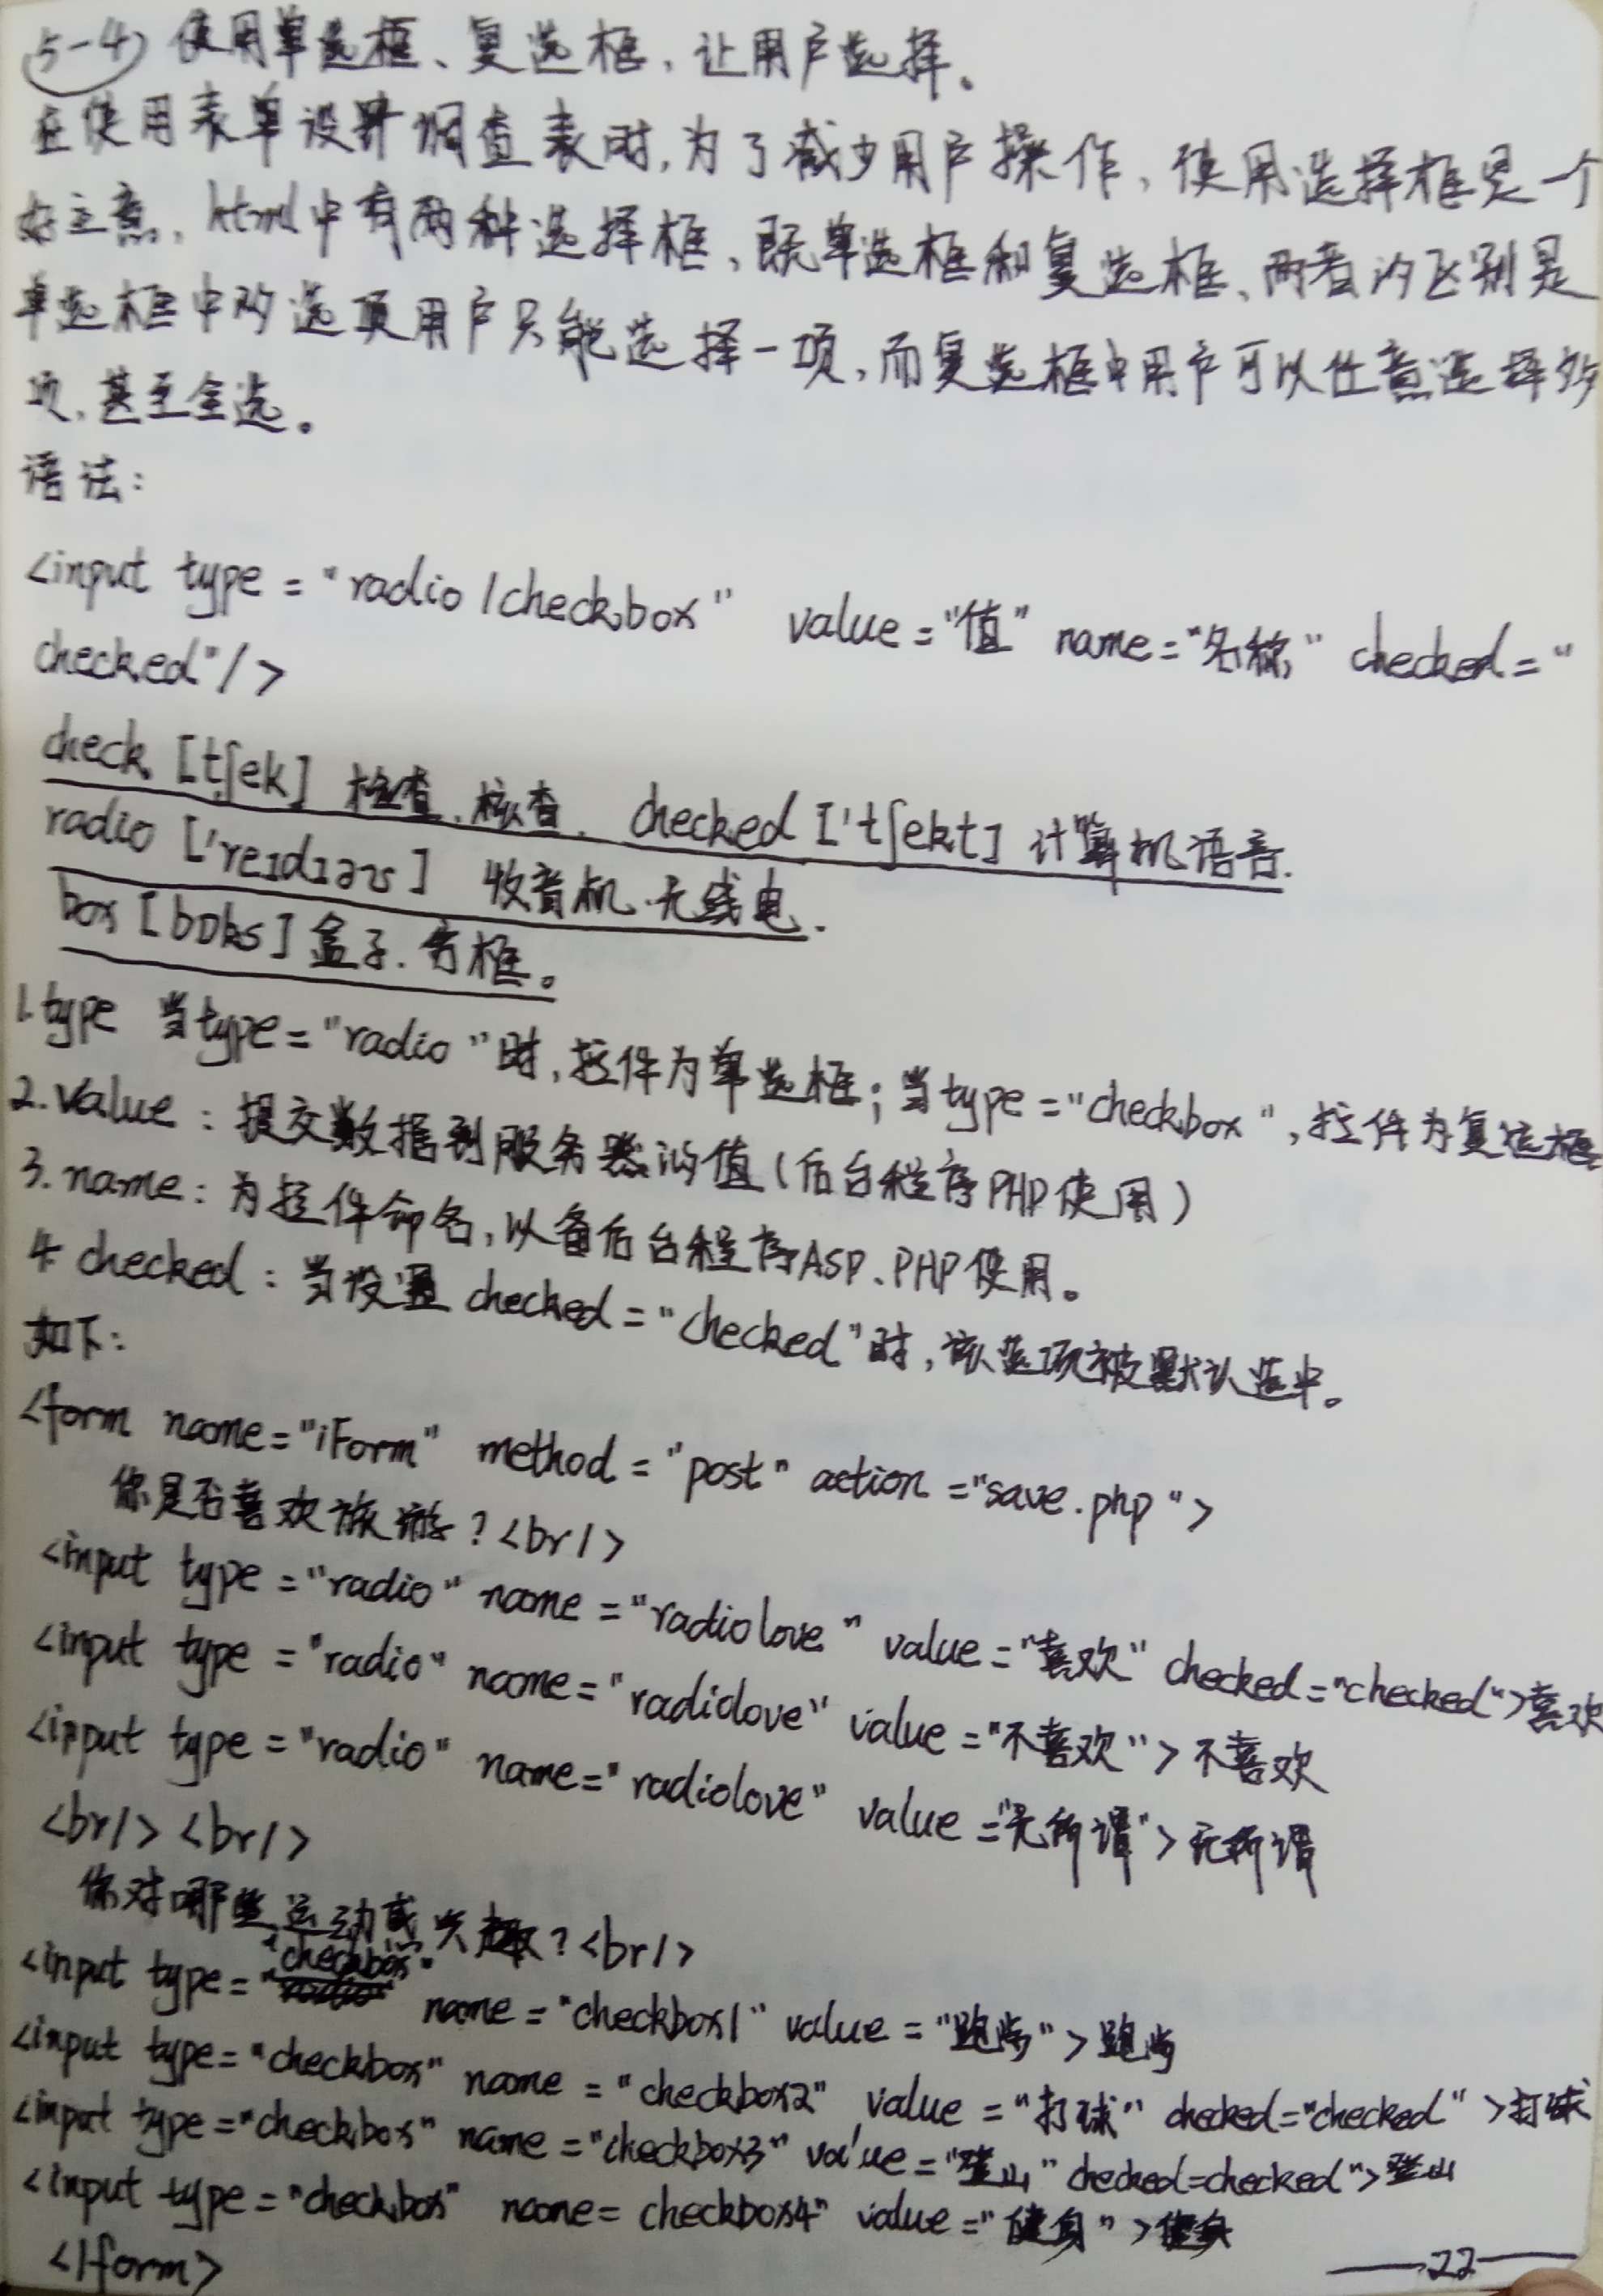 5-4 使用单选框、复选框,让用户选择。
在使用表单设计调查表时,为了减少用户操作,使用选择框是一个
好主意,html中有两种选择框、既单选框和复选框、两者的区别是
单选框中的选项用户只能选择一项,而复选框中用户可以任意选择多
项,甚至全选。
语法:
<input type = "radio/checkbox" value="值" name="名称" checked="
checked"/>
check [tʃek] 检查、核查. checked ['tʃekt] 计算机语言.
radio ['reɪdɪəʊ] 收音机.无线电.
box [bɒks] 盒子.方框。
1.type 当type="radio"时,控件为单选框;当type="checkbox",控件为复选框
2.value:提交数据到服务器的值(后台程序PHP使用)
3.name:为控件命名,以备后台程序ASP、PHP使用。
4.checked:当设置 checked="checked"时,该选项被默认选中。
如下:
<form name="iForm" method="post" action="save.php">
你是否喜欢旅游?<br/>
<input type="radio" name="radiolove" value="喜欢" checked="checked">喜欢
<input type="radio" name="radiolove" value="不喜欢">不喜欢
<input type="radio" name="radiolove" value="无所谓">无所谓
<br/><br/>
你对哪些运动感兴趣?<br/>
<input type="checkbox" name="checkbox1" value="跑步">跑步
<input type="checkbox" name="checkbox2" value="打球" checked="checked">打球
<input type="checkbox" name="checkbox3" value="登山" checked=checked">登山
<input type="checkbox" name=checkbox4" value="健身">健身
</form>
22